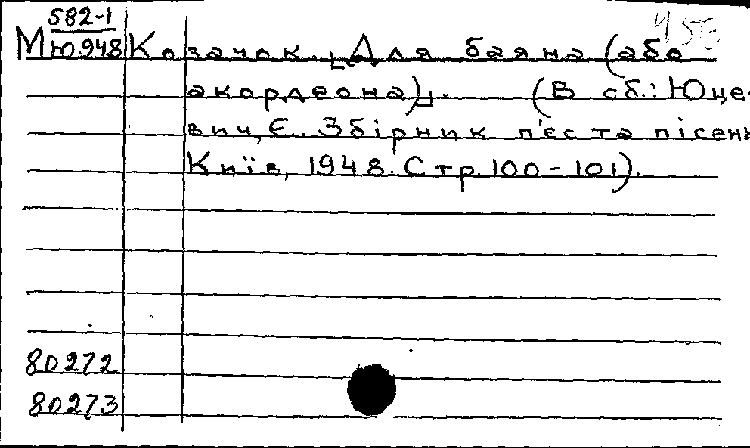 582-1
М Ю948 Козачок. [Для баяна (або
акордеона)]. (В сб.: Юце-
вич, Є. Збірник п'єс та пісень
Київ, 1948. Стр. 100-101).
80272
80273